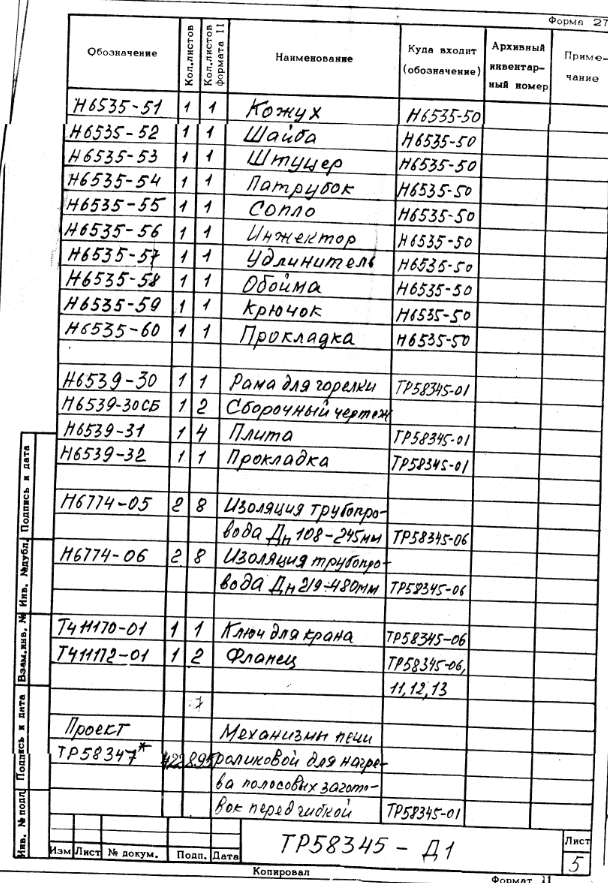 Форма 27
Обозначение Кол.листов Кол.листов формата 11 Наименование Куда входит (обозначение) Архивный инвентарный номер Примечание
Н6535-51 1 1 Кожух Н6535-50
Н6535-52 1 1 Шайба Н6535-50
Н6535-53 1 1 Штуцер Н6535-50
Н6535-54 1 1 Патрубок Н6535-50
Н6535-55 1 1 Сопло Н6535-50
Н6535-56 1 1 Инжектор Н6535-50
Н6535-57 1 1 Удлинитель Н6535-50
Н6535-58 1 1 Обойма Н6535-50
Н6535-59 1 1 Крючок Н6535-50
Н6535-60 1 1 Прокладка Н6535-50
Н6539-30 1 1 Рама для горелки ТР58345-01
Н6539-30СБ 1 2 Сборочный чертеж
Н6539-31 1 4 Плита ТР58345-01
Н6539-32 1 1 Прокладка ТР58345-01
Н6774-05 2 8 Изоляция трубопро-
вода Дн 108-245мм ТР58345-06
Н6774-06 2 8 Изоляция трубопро-
вода Дн 219-480мм ТР58345-06
Т411170-01 1 1 Ключ для крана ТР58345-06
Т411172-01 1 2 Фланец ТР58345-06,
11,12,13
Проект Механизмы печи
ТР58347* 422 895 роликовой для нагре-
ва полосовых загото-
вок перед гибкой ТР58345-01
Инв. № подл Подпись и дата Взам.инв. № Инв. №дубл Подпись и дата
ТР58345 - Д1
Изм Лист № докум. Подп. Дата
Лист
5
Копировал
Формат 11